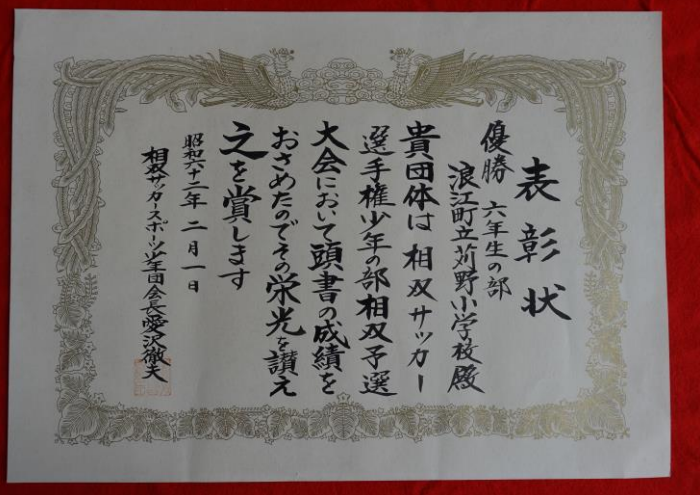 表彰状
優勝 六年生の部
浪江町立苅野小学校殿
貴団体は相双サッカー
選手権少年の部相双予選
大会において頭書の成績を
おさめたのでその栄光を讃え
之を賞します
昭和六十二年二月一日
相双サッカースポーツ少年団会長愛沢徹夫